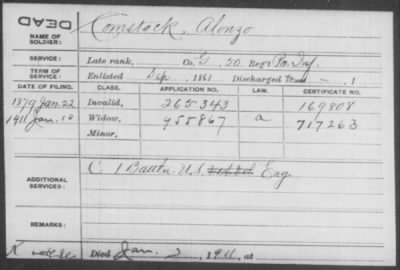 DEAD
NAME OF SOLDIER: Comstock, Alonzo
SERVICE: Late rank, Co. G, 50 Reg't Pa. Inf.
TERM OF SERVICE: Enlisted Sep, 1861 Discharged
DATE OF FILING. CLASS. APPLICATION NO. LAW. CERTIFICATE NO.
1879 Jan. 22 Invalid, 265343 169808
1911 Jan. 10 Widow, 955867 a 717263
Minor,
ADDITIONAL SERVICES: C 1 Batt'n. U.S. Eng
REMARKS:
Died Jan. 2, 1911, at